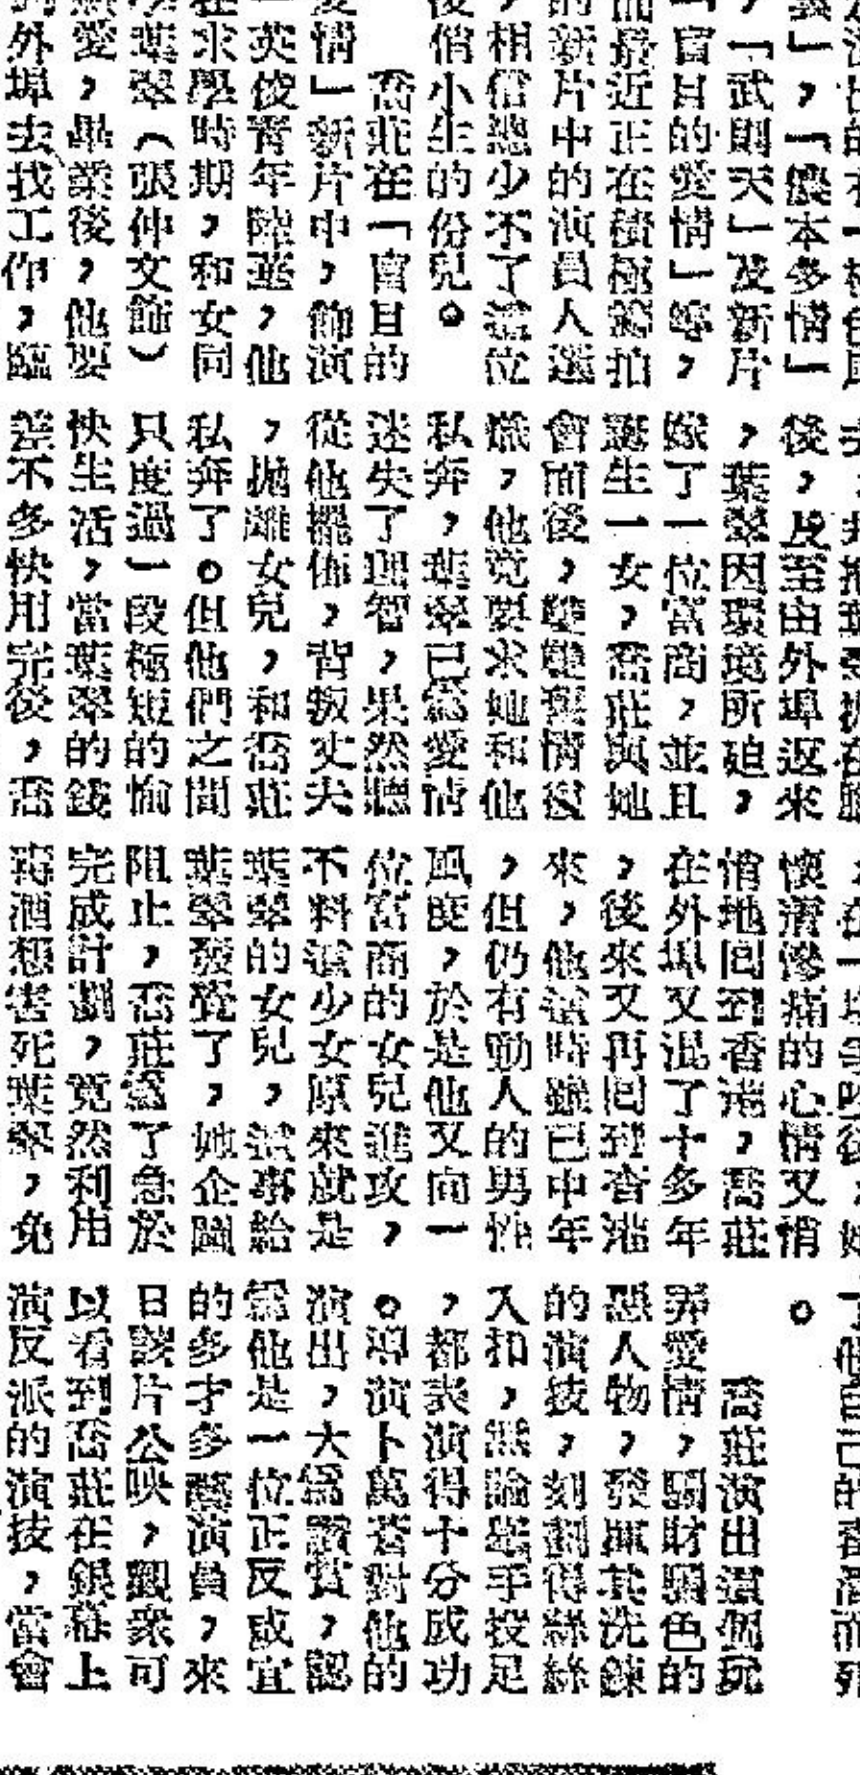 雲」，「儂本多情」
，「武則天」及新片
「盲目的愛情」等，
而最近正在積極籌拍
的新片中的演員人選
，相信總少不了這位
俊俏小生的份兒。
喬莊在「盲目的
愛情」新片中，飾演
一英俊靑年陸華，他
在求學時期，和女同
學葉翠（張仲文飾）
戀愛，畢業後，他要
到外埠去找工作，臨
後，及至由外埠返來
，葉翠因環境所迫，
嫁了一位富商，並且
誕生一女，喬莊與她
會面後，雙雙舊情復
燃，他竟要求她和他
私奔，葉翠已爲愛情
迷失了理智，果然聽
從他擺佈，背叛丈夫
，拋離女兒，和喬莊
私奔了。但他們之間
只度過一段極短的愉
快生活，當葉翠的錢
差不多快用完後，喬
，在一場爭吵後，她
懷着慘痛的心情又悄
悄地囘到香港，喬莊
在外埠又混了十多年
，後來又再囘到香港
來，他這時雖已中年
，但仍有動人的男性
風度，於是他又向一
位富商的女兒進攻，
不料這少女原來就是
葉翠的女兒，該事給
葉翠發覺了，她企圖
阻止，喬莊爲了急於
完成計劃，竟然利用
毒酒想害死葉翠，免
了他自己的
。
喬莊演出這個玩
弄愛情，騙財騙色的
惡人物，發揮其洗鍊
的演技，刻劃得絲絲
入扣，無論舉手投足
，都表演得十分成功
。導演卜萬蒼對他的
演出，大爲讚賞，認
爲他是一位正反咸宜
的多才多藝演員，來
日該片公映，觀衆可
以看到喬莊在銀幕上
演反派的演技，當會